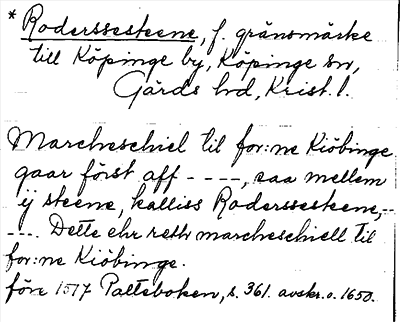 * Roderssesteene, f. gränsmärke
till Köpinge by, Köpinge sn,
Gärds hd, Krist. l.
Marcheschiel til for:ne Kiöbinge
gaar först aff - - - -, saa mellem
ij steene, kalliss Roderssesteene, - -
- - - -. Dette ehr reth marcheschiell til
for:ne Kiöbinge.
före 1517 Palteboken, s. 361. avskr. o. 1650.